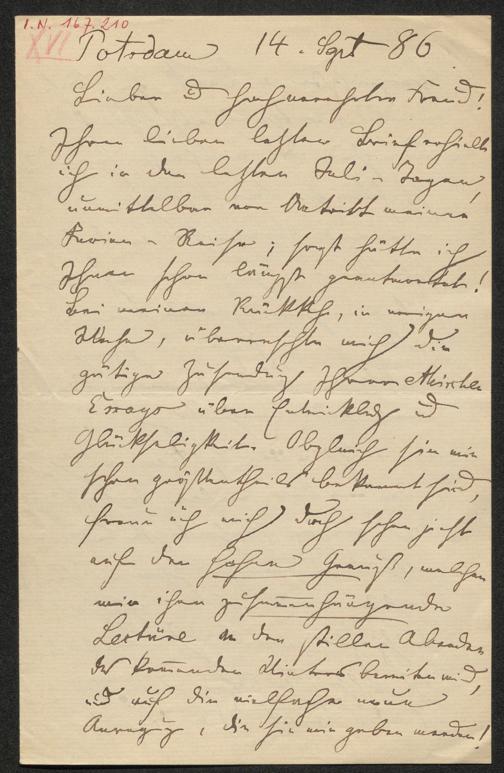 I. N. 167.210
XVI
Potsdam 14. Sept 86
Lieber u hochverehrter Freund!
Ihren lieben letzten Brief erhielt
ich in den letzten Juli-Tagen,
unmittelbar vor Antritt meiner
Ferien-Reise; sonst hätte ich
Ihnen schon längst geantwortet!
Bei meiner Rückkehr, in voriger
Woche, überraschte mich die
gütige Zusendung Ihrer
Essays über Entwicklung u
Glückseligkeit. Obgleich sie mir
schon größtentheils bekannt sind,
freue ich mich doch schon jetzt
auf den hohen Genuß, welchen
mir ihre zusammenhängende
Lectüre an den stillen Abenden
des kommenden Winters bereiten wird,
und auf die vielfache neue
Anregung, die sie mir geben werden!